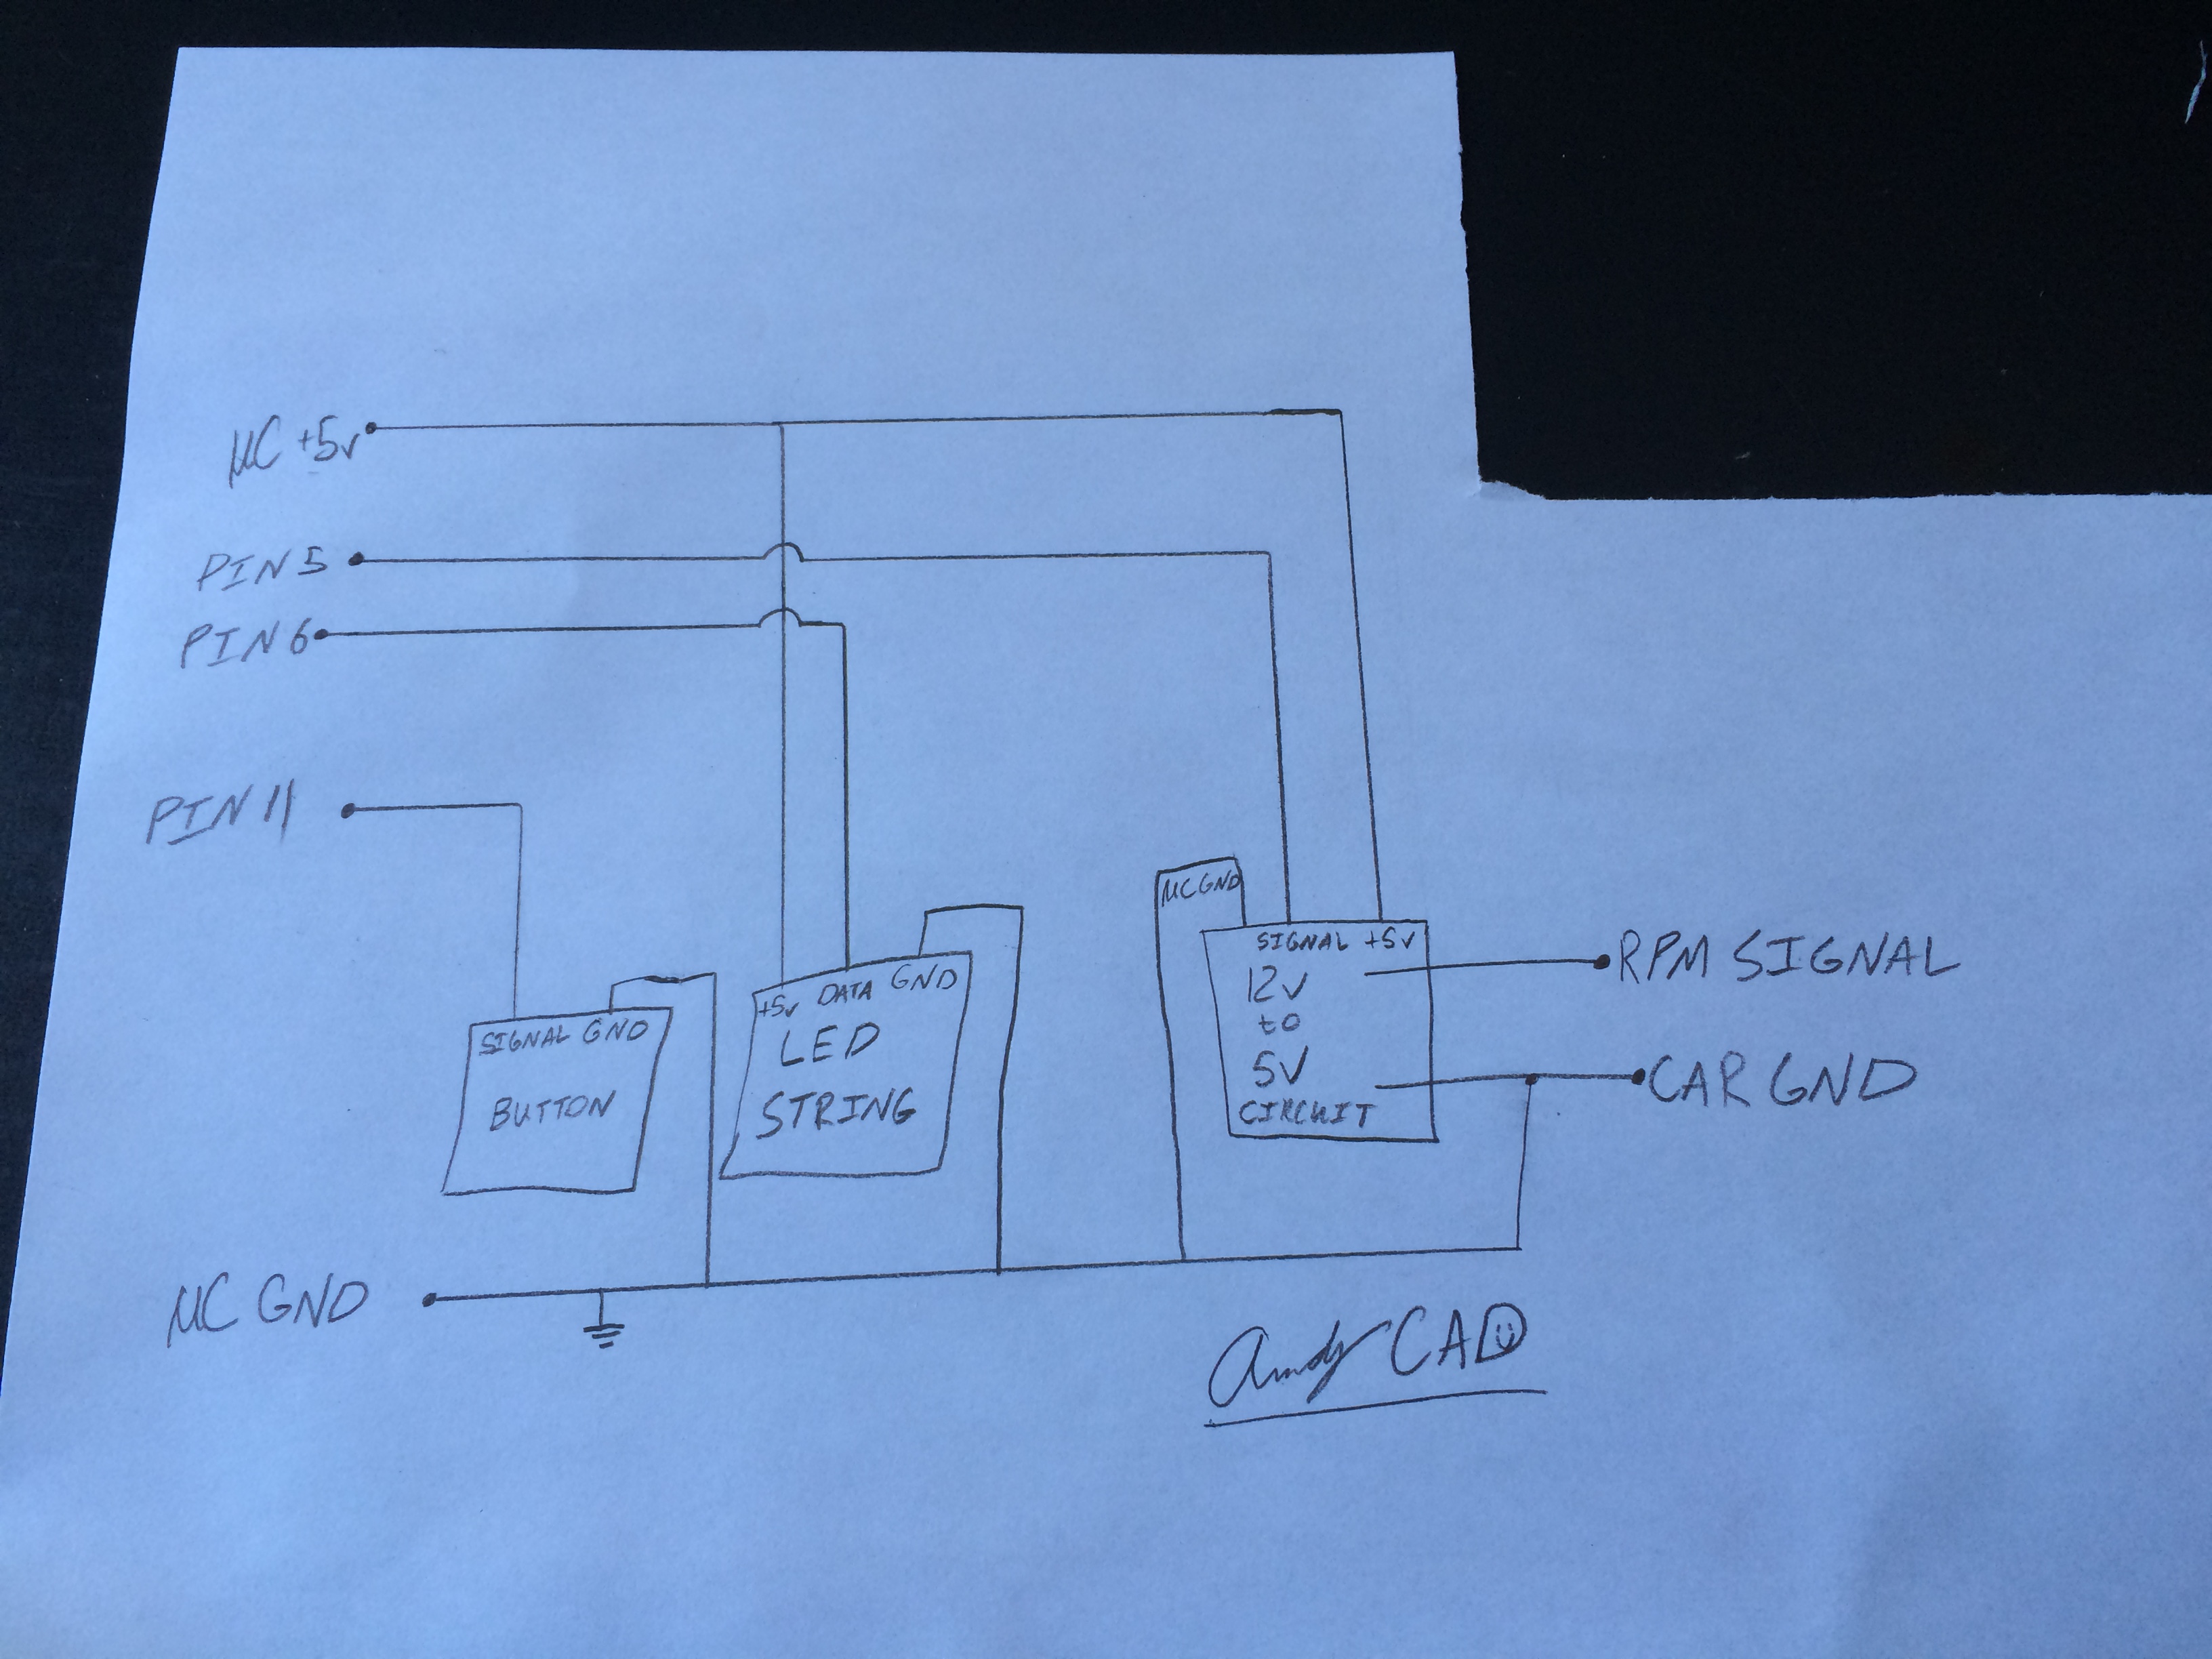 µC +5v
PIN 5
PIN 6
PIN 11
µC GND
SIGNAL GND
BUTTON
+5v DATA GND
LED
STRING
µC GND
SIGNAL +5v
12v
to
5V
CIRCUIT
RPM SIGNAL
CAR GND
Andy CAD